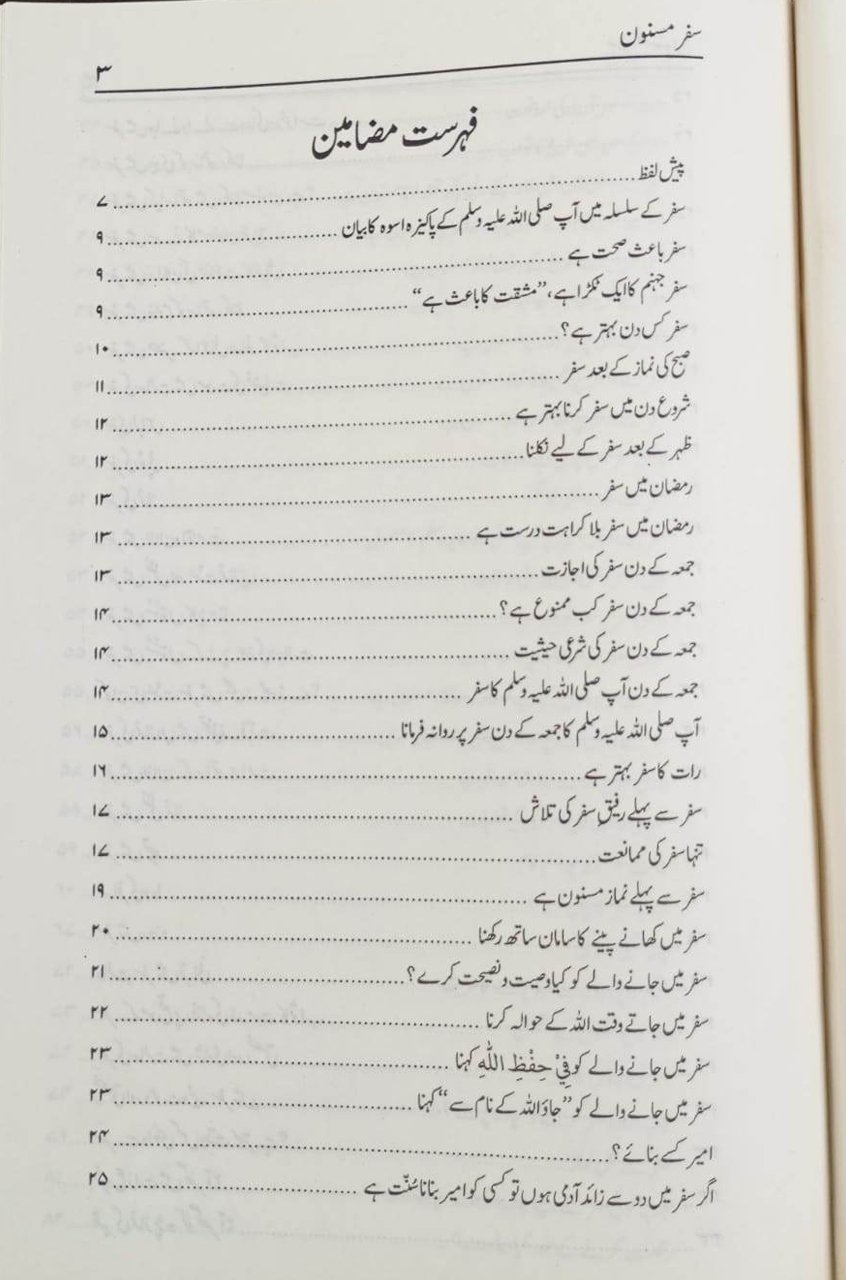 سفر مسنون
۳
فہرست مضامین
پیش لفظ ................ ۷
سفر کے سلسلہ میں آپ صلی اللہ علیہ وسلم کے پاکیزہ اسوہ کا بیان ................ ۹
سفر باعث صحت ہے ................ ۹
سفر جہنم کا ایک ٹکڑا ہے، ”مشقت کا باعث ہے“ ................ ۹
سفر کس دن بہتر ہے؟ ................ ۱۰
صبح کی نماز کے بعد سفر ................ ۱۱
شروع دن میں سفر کرنا بہتر ہے ................ ۱۲
ظہر کے بعد سفر کے لیے نکلنا ................ ۱۲
رمضان میں سفر ................ ۱۳
رمضان میں سفر بلا کراہت درست ہے ................ ۱۳
جمعہ کے دن سفر کی اجازت ................ ۱۳
جمعہ کے دن سفر کب ممنوع ہے؟ ................ ۱۴
جمعہ کے دن سفر کی شرعی حیثیت ................ ۱۴
جمعہ کے دن آپ صلی اللہ علیہ وسلم کا سفر ................ ۱۴
آپ صلی اللہ علیہ وسلم کا جمعہ کے دن سفر پر روانہ فرمانا ................ ۱۵
رات کا سفر بہتر ہے ................ ۱۶
سفر سے پہلے رفیقِ سفر کی تلاش ................ ۱۷
تنہا سفر کی ممانعت ................ ۱۷
سفر سے پہلے نماز مسنون ہے ................ ۱۹
سفر میں کھانے پینے کا سامان ساتھ رکھنا ................ ۲۰
سفر میں جانے والے کو کیا وصیت و نصیحت کرے؟ ................ ۲۱
سفر میں جاتے وقت اللہ کے حوالہ کرنا ................ ۲۲
سفر میں جانے والے کو فِيْ حِفْظِ اللّٰهِ کہنا ................ ۲۳
سفر میں جانے والے کو ”جاؤ اللہ کے نام سے“ کہنا ................ ۲۳
امیر کسے بنائے؟ ................ ۲۴
اگر سفر میں دو سے زائد آدمی ہوں تو کسی کو امیر بنانا سُنّت ہے ................ ۲۵